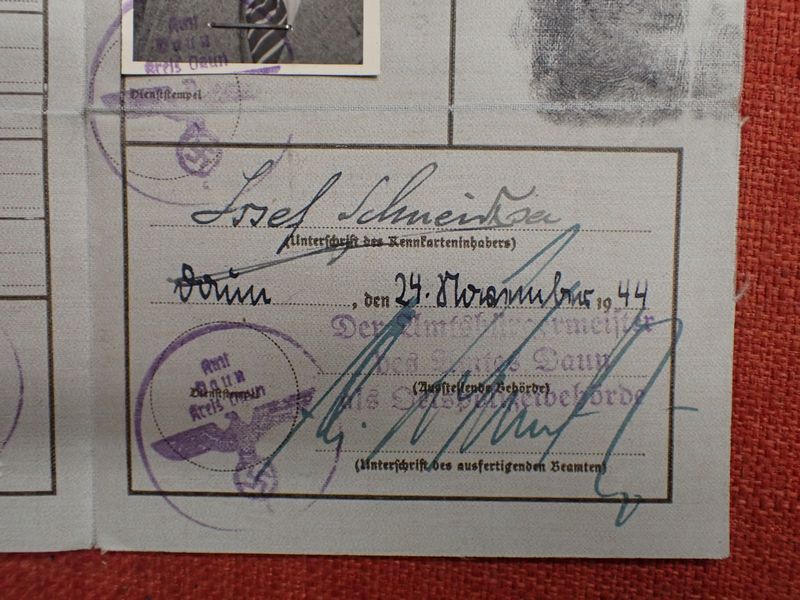 Amt
Daun
Kreis Daun
Dienststempel
Josef Schneider
(Unterschrift des Kennkarteninhabers)
Daun, den 24. November 1944
Der Amtsbürgermeister
des Amtes Daun
als Ortspolizeibehörde
(Ausstellende Behörde)
Amt
Daun
Kreis Daun
Dienststempel
(Unterschrift des ausfertigenden Beamten)